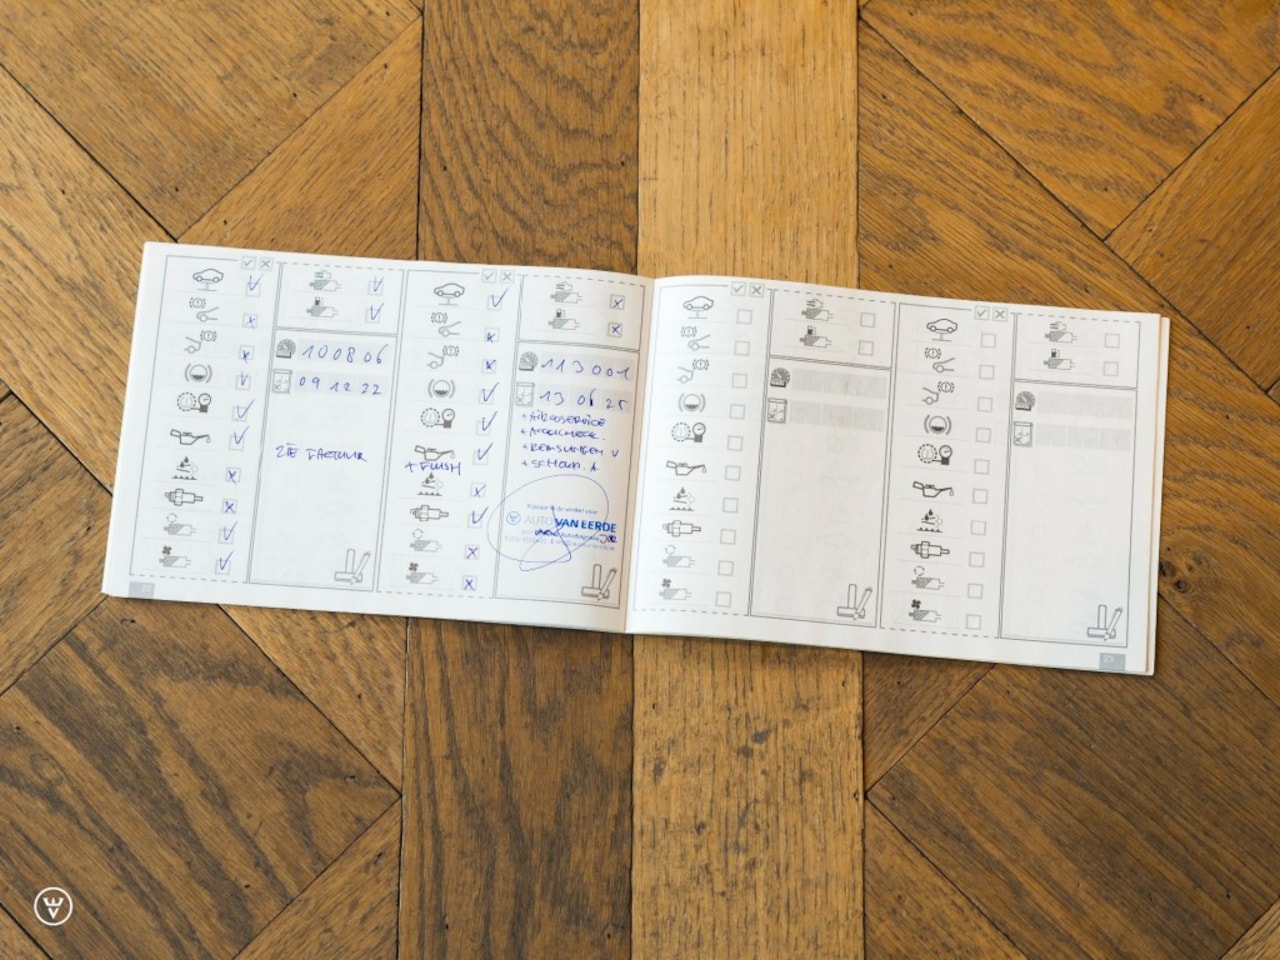 100806
09 12 22
ZIE FACTUUR
+ FLUSH
113001
13 06 25
+ AIRCOSERVICE
+ ACCUCHECK.
+ REMSUNGEN V
AUTO VAN EERDE
22
23